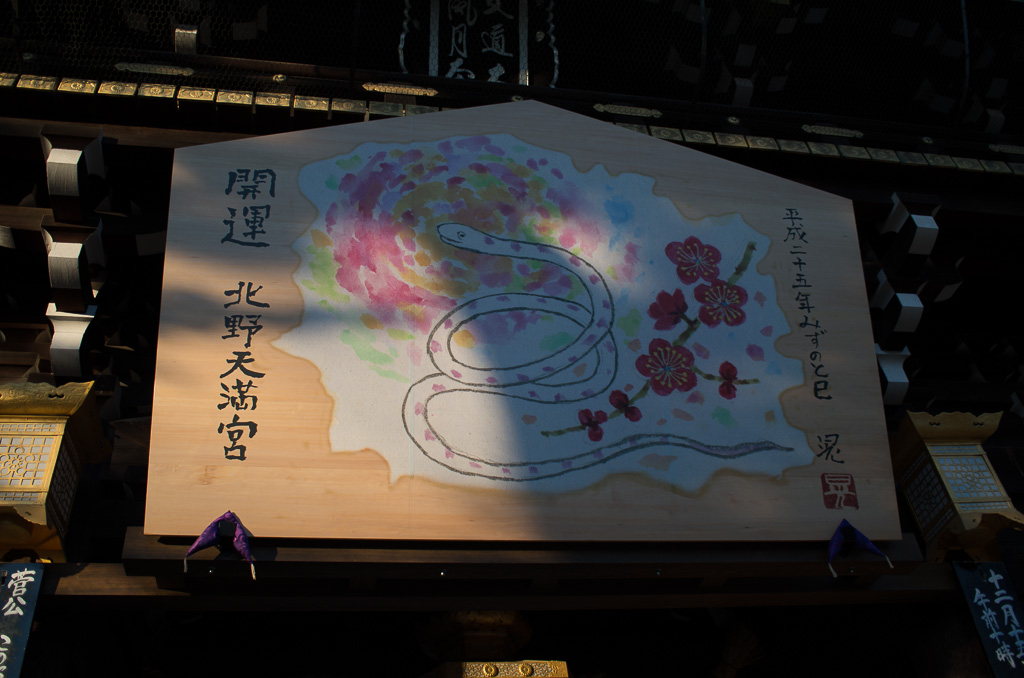 風月
道
平成二十五年みずのと巳
晃
晃
開運 北野天満宮
十二月十
午前十時
菅公